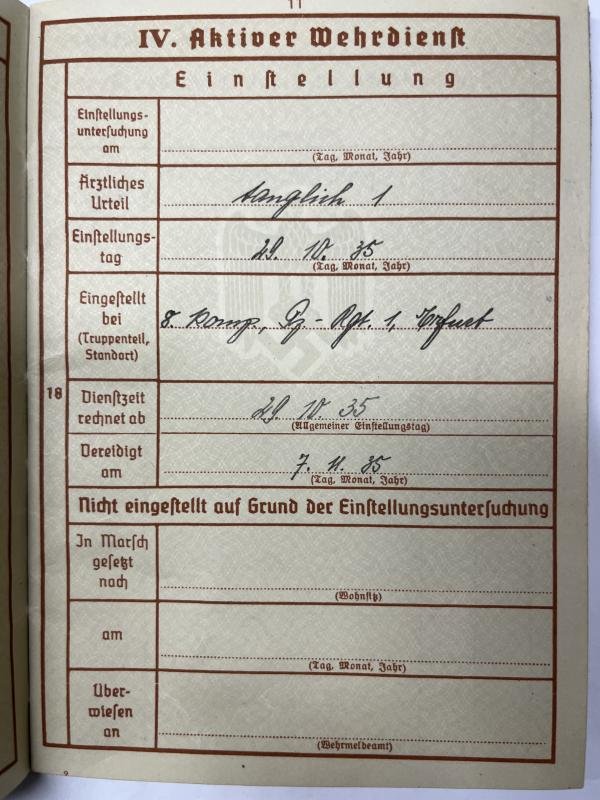 11
IV. Aktiver Wehrdienst
Einstellung
Einstellungs-
untersuchung
am
(Tag, Monat, Jahr)
Ärztliches
Urteil
tauglich 1
Einstellungs-
tag
29. 10. 35
(Tag, Monat, Jahr)
Eingestellt
bei
(Truppenteil,
Standort)
8. Komp., Pz.-Rgt. 1, Erfurt
18
Dienstzeit
rechnet ab
29. 10. 35
(Allgemeiner Einstellungstag)
Vereidigt
am
7. 11. 35
(Tag, Monat, Jahr)
Nicht eingestellt auf Grund der Einstellungsuntersuchung
In Marsch
gesetzt
nach
(Wohnsitz)
am
(Tag, Monat, Jahr)
Über-
wiesen
an
(Wehrmeldeamt)